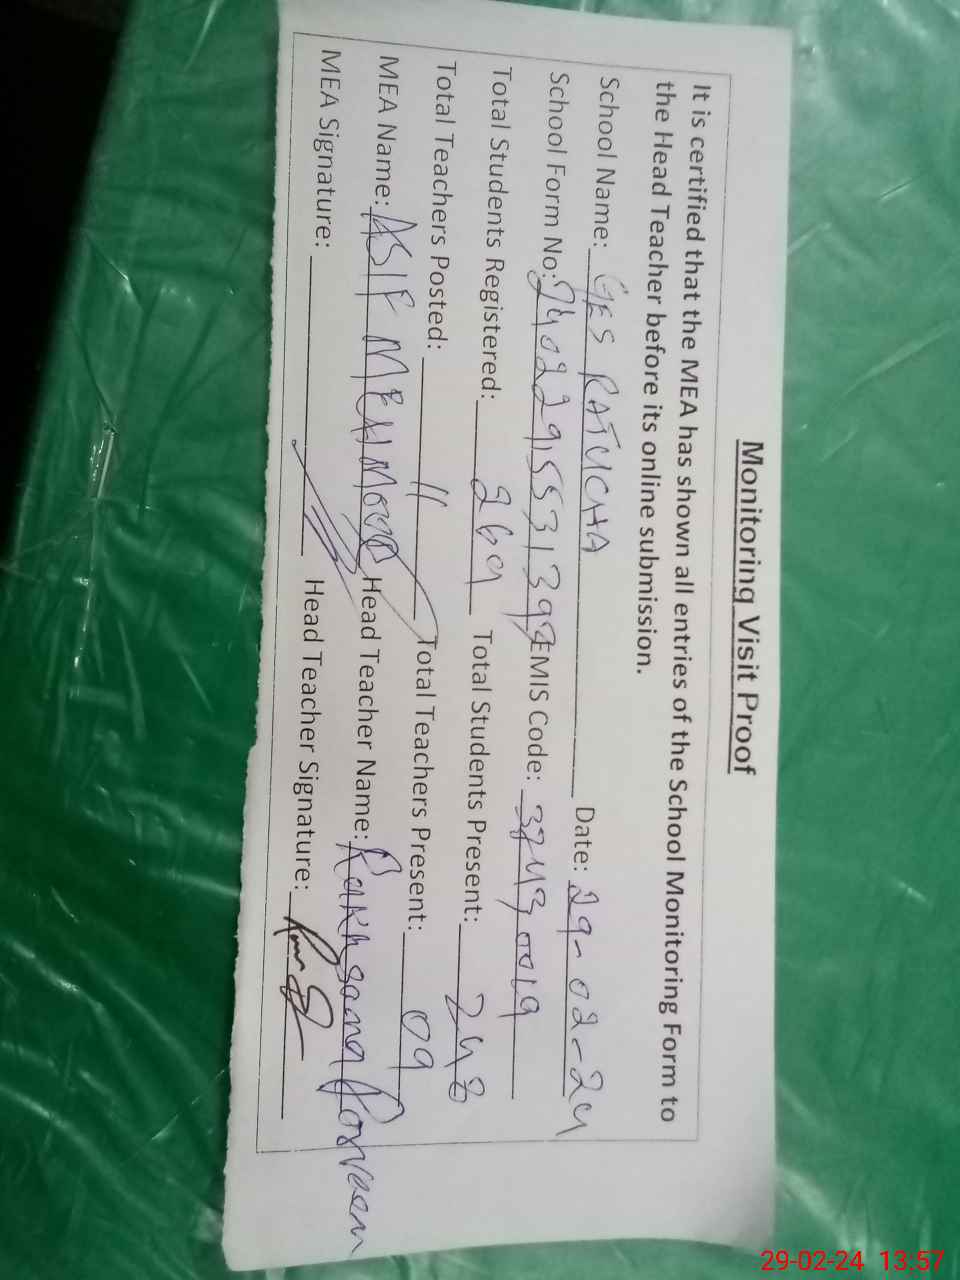 Monitoring Visit Proof
It is certified that the MEA has shown all entries of the School Monitoring Form to
the Head Teacher before its online submission.
School Name: GES RATUCHA Date: 29-02-24
School Form No: EMIS Code:
Total Students Registered: 269 Total Students Present: 248
Total Teachers Posted: 11 Total Teachers Present: 09
MEA Name: ASIF MEHMOOD Head Teacher Name: Rukhsana Parveen
MEA Signature: Head Teacher Signature:
29-02-24 13:57